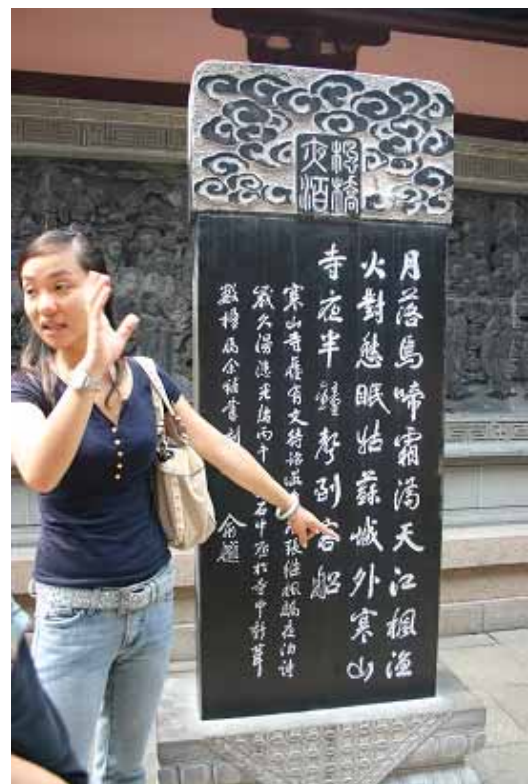 楓橋
夜泊
月落烏啼霜满天江楓漁
火對愁眠姑蘇城外寒山
寺夜半鐘聲到客船
寒山寺舊有文待詔張继楓橋夜泊诗
歲久漫漶光緒丙午石中丞於寺中新葺
數楹属余補書刻 俞樾